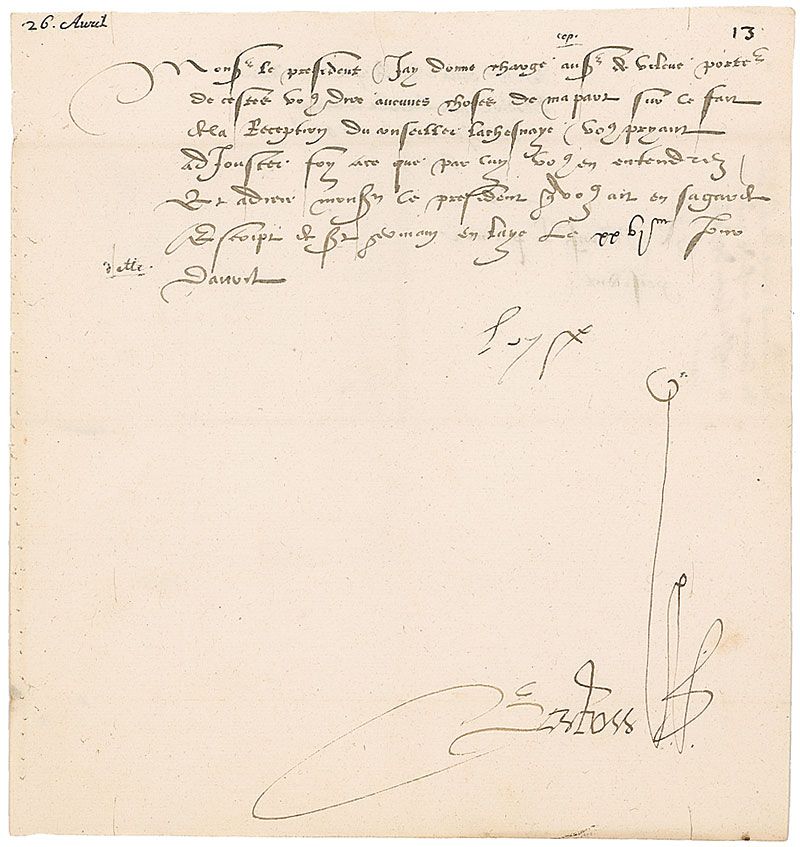 26. Avril
13
cep.
Mons.r le president Jay donne charge au s.r de Vileue porte.r
de cestes vo9 dire aucunes choses de ma part sur le fait
de la Reception du conseiller lachesnaye / vo9 pryant
adJouster foy a ce que par luy vo9 en entendrez /
Et adieu mons.r le president q vo9 ait en sa garde
Escript a St germain en laye Le xxvj.me Jour
davril
Loyse